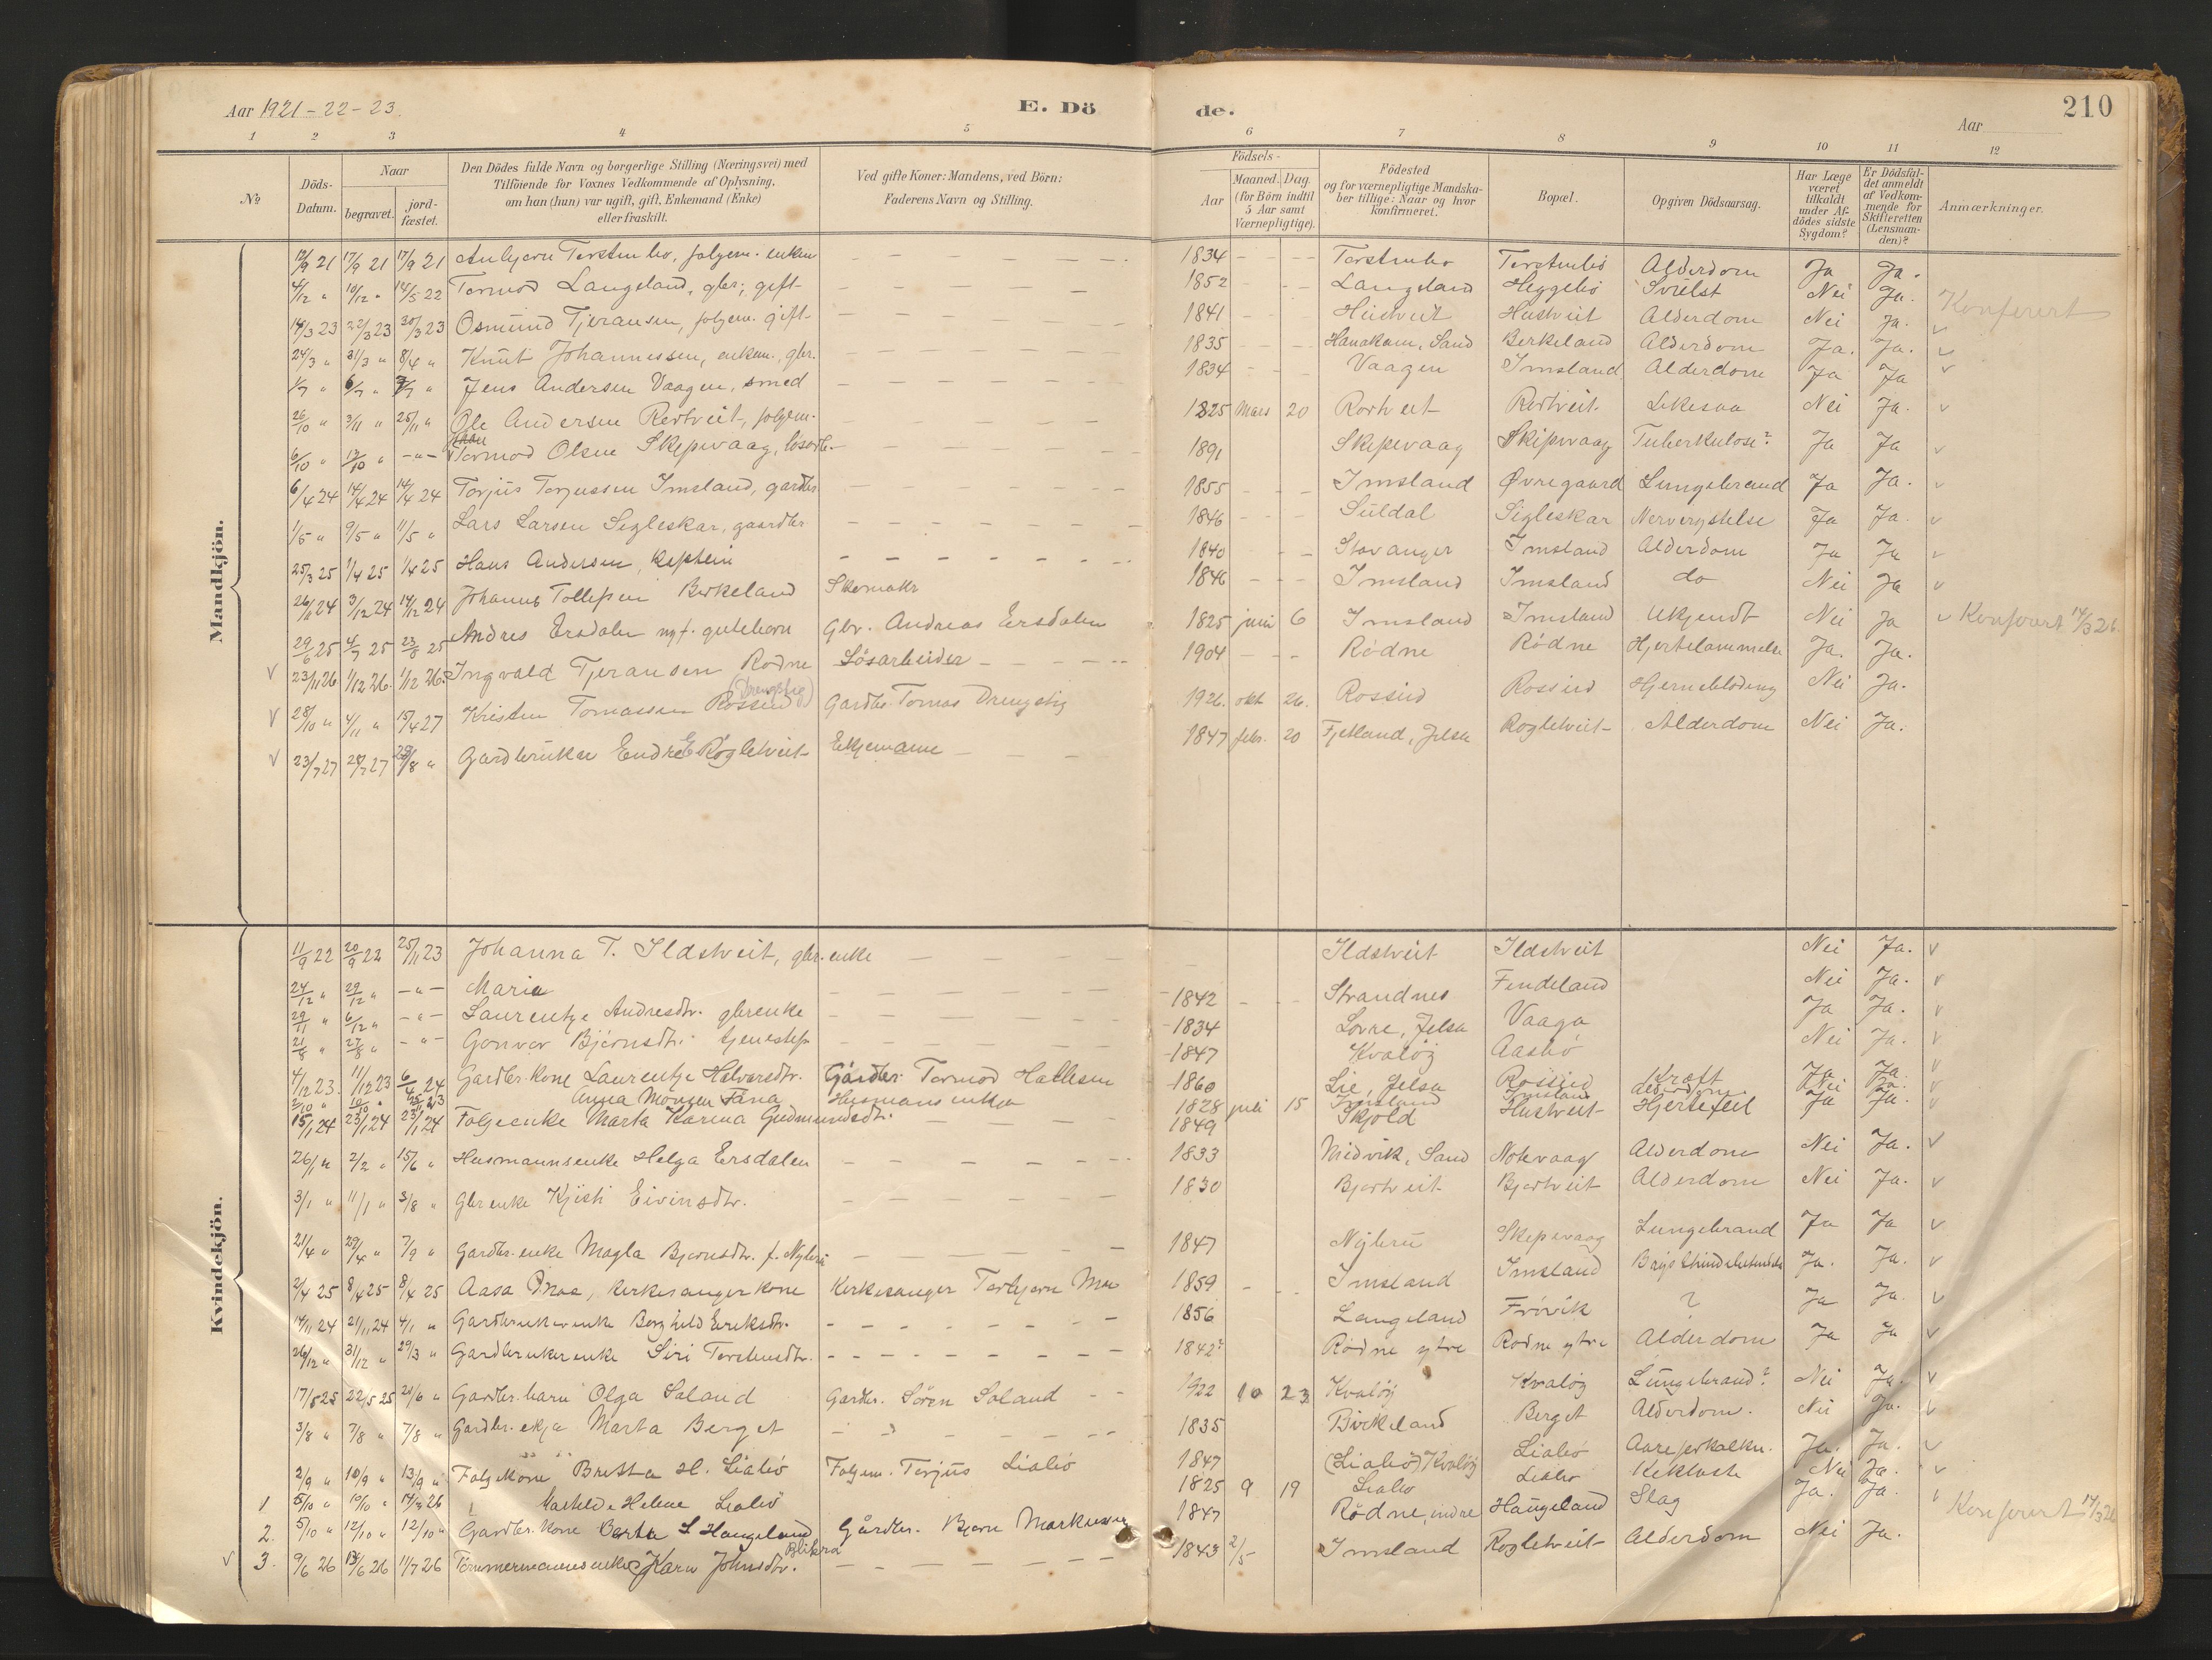 Aar 1921-22-23.
E. Dö
de.
Aar
210
1 2 3 4 5 6 7 8 9 10 11 12
№
Döds-
Datum.
Naar
begravet.
jord-
fæstet.
Den Dödes fulde Navn og borgerlige Stilling (Næringsvei) med
Tilföiende for Voxnes Vedkommende af Oplysning,
om han (hun) var ugift, gift, Enkemand (Enke)
eller fraskilt.
Ved gifte Koner: Mandens, ved Börn:
Faderens Navn og Stilling.
Födsels-
Aar
Maaned. Dag.
(for Börn indtil
5 Aar samt
Værnepligtige).
Födested
og for værnepligtige Mandska-
ber tillige: Naar og hvor
konfirmeret.
Bopæl.
Opgiven Dödsaarsag.
Har Læge
været
tilkaldt
under Af-
dödes sidste
Sygdom?
Er Dödsfal-
det anmeldt
af Vedkom-
mende for
Skifteretten
(Lensman-
den)?
Anmærkninger.
Mandkjön.
12/9 21 17/9 21 17/9 21 1834 Alderdom Ja Ja.
4/12 " 10/12 " 14/5 22 Tormod Langeland, gbr., gift 1852 Langeland Heggebö Nei Ja.
14/3 23 22/3 23 30/3 23 Osmund Tjeransen, folgem. gift 1841 Hustveit Hustveit Alderdom Nei Ja. Konferert
24/3 " 31/3 " 8/4 " Knut Johannessen, enkem., gbr. 1835 Sand Berkeland Alderdom Ja. Ja.
1/7 " 6/7 " Jens Andersen Vaagen, smed 1834 Vaagen Imsland Alderdom Ja Ja
26/10 " 3/11 " 25/11 " Ole Andersen Rertveit, folgem. 1825 Mars 20 Rortveit Rertveit Nei Ja.
6/10 " 12/10 " -"- Tormod Olsen Skipevaag, 1891 Skipevaag Skipevaag Tuberkulose? Ja Ja
6/4 24 14/4 24 14/4 24 Torjus Torjussen Imsland, gardbr 1855 Imsland Øvregaard Lungebrand Ja Ja.
1/5 " 9/5 " 11/5 " Lars Larsen Sigleskar, gaardbr. 1846 Suldal Sigleskar Ja Ja.
25/3 25 1/4 25 1/4 25 Hans Andersen, kaptein 1840 Stavanger Imsland Alderdom Ja Ja
26/11 24 3/12 24 14/12 24 Johannes Tollefsen Berkeland 1846 Imsland Imsland do Nei Ja
29/6 25 4/7 25 23/8 25 Andres Ersdalen Gbr. Andreas Ersdalen 1825 juni 6 Imsland Imsland Ukjendt Nei Ja Konferert 14/3 26.
23/11 26 1/12 26. 1/12 26. Ingvald Tjeransen Rødne Lösarbeider 1904 Rødne Rødne Hjertelammelse Ja. Ja.
28/10 " 4/11 " 15/4 27 Kristen Tomassen Rossird (Drengstig) Gardbr. Tomas Drengstig 1926. okt 26. Rossird Rossird Hjerneblödning Nei Ja.
23/7 27 28/7 27 28/8 " Gardbruker Endre E Rogletveit Ekjemann 1847 febr. 20 Fjetland, Jelsa Rogletveit Alderdom Nei Ja.
Kvindekjön.
11/9 22 20/9 22 25/11 23 Johanna T. Ildstveit, gbr. enke Ildstveit Ildstveit Nei Ja.
24/12 " 29/12 " -"- Maria 1842 Strandnes Fendeland Nei Ja.
29/11 " 6/12 " -"- Laurentze Andresdtr. gbrenke 1834 Lovre, Jelsa Vaaga Ja Ja.
21/8 " 27/8 " -"- Gonvor Bjørnsdtr. 1847 Kvaløy Aasbö Nei Ja.
4/12 23. 11/12 23 6/4 24 Gardbr. kone Laurentze Halvorsdtr. Gårdbr. Tormod Hallesen 1860 Lie, Jelsa Rossird Kræft Ja Ja.
2/10 " 10/10 " Anna Monsen Tana Husmans enkja 1828 juli 15 Imsland Imsland Alderdom Nei Ja.
15/1 24 23/1 24 23/1 24 Folgeenke Marta Karina Gudmundsdtr. 1849 Skjold Hustveit Hjertefeil Ja Ja.
26/1 " 2/2 " 15/6 " Husmannsenke Helga Ersdalen 1833 Midvik, Sand Notevaag Alderdom Nei Ja.
3/1 " 11/1 " 3/8 " Gbrenke Kjisti Eivinsdtr. 1830 Bjortveit Bjortveit Alderdom Nei Ja.
21/4 " 29/4 " 7/9 " Gardbr. enke Magla Bjørnsdtr. f. Nybru 1847 Nybru Skipevaag Lungebrand Ja Ja
2/4 25 8/4 25 8/4 25 Aasa Moe, kirkesanger kone Kirkesanger Torbjørn Moe 1859 Imsland Imsland Ja. Ja.
14/11 24 21/11 24 4/1 " Gardbrukerenke Borghild Eriksdtr. 1856 Langeland Frövik ? Ja Ja.
26/12 " 31/12 " 29/3 " Gardbrukerenke Siri Torstensdtr. 1842? Rødne ytre Rødne ytre Alderdom Ja Ja
17/5 25 22/5 25 21/6 " Gardbr. barn Olga Soland Gardbr. Sören Soland 1922 10 23 Kvaløy Kvaløy Lungebrand? Nei Ja.
3/8 " 7/8 " 7/8 " Gardbr. ekja Marta Berget 1835 Birkeland Berget Alderdom. Nei Ja.
2/9 " 10/9 " 13/9 " Folgekone Britta H. Lialid Folgem. Torjus Lialid 1847 (Lialid) Kvaløy Lialid Ja. Ja.
1 5/10 " 10/10 " 14/3 26 Mathilde Helene Lialid 1825 9 19 Lialid Lialid Nei Ja.
2. 5/10 " 12/10 " 12/10 " Gardbr. kone Berta S Haugeland Gårdbr. Bjørn Markussen 1847 Rødne, indre Haugeland Slag Ja. Ja. Konferert 14/3 26
3. 9/6 26 19/6 26 11/7 26 Tömmermannsenke Karu Johnsdtr. Blikra 1843 2/5 Imsland Rogletveit Alderdom Nei Ja.